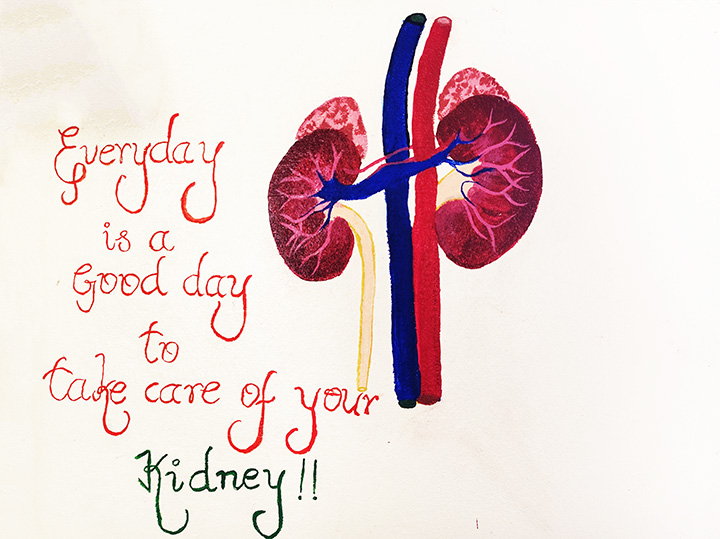 Everyday
is a
Good day
to
take care of your
Kidney!!